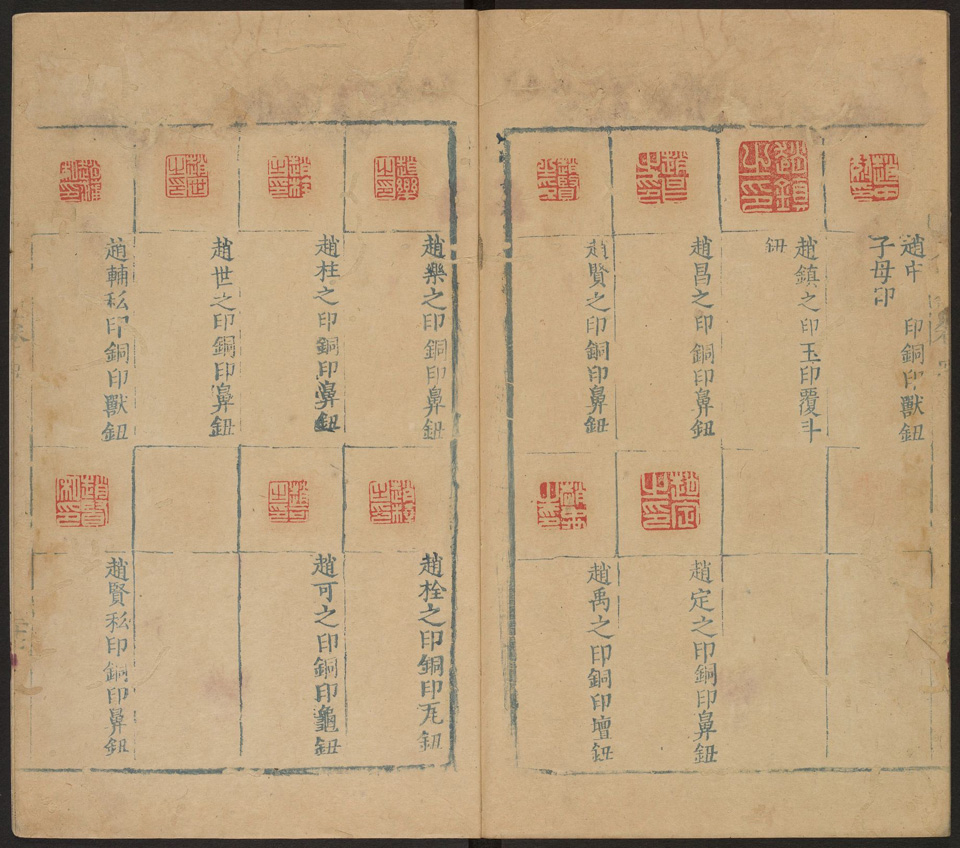 趙中 印銅印獸鈕
子母印
趙鎮之印玉印覆斗
鈕
趙昌之印銅印鼻鈕
趙賢之印銅印鼻鈕
趙定之印銅印鼻鈕
趙禹之印銅印壇鈕
趙樂之印銅印鼻鈕
趙柱之印銅印鼻鈕
趙世之印銅印鼻鈕
趙輔私印銅印獸鈕
趙栓之印銅印瓦鈕
趙可之印銅印龜鈕
趙賢私印銅印鼻鈕